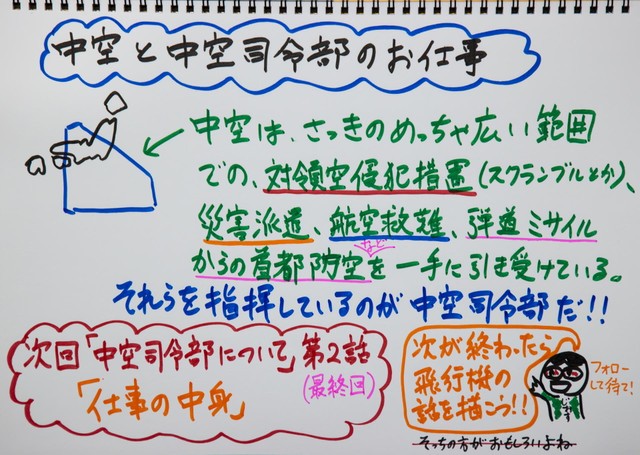 中空と中空司令部のお仕事
中空は、さっきのめっちゃ広い範囲
での、対領空侵犯措置(スクランブルとか)、
災害派遣、航空救難、弾道ミサイル
など
からの首都防空を一手に引き受けている。
それらを指揮しているのが中空司令部だ!!
次回「中空司令部について」第2話
(最終回)
「仕事の中身」
次が終わったら
飛行機の
話を描こう!!
フォロー
して待て!
そっちの方がおもしろいよね